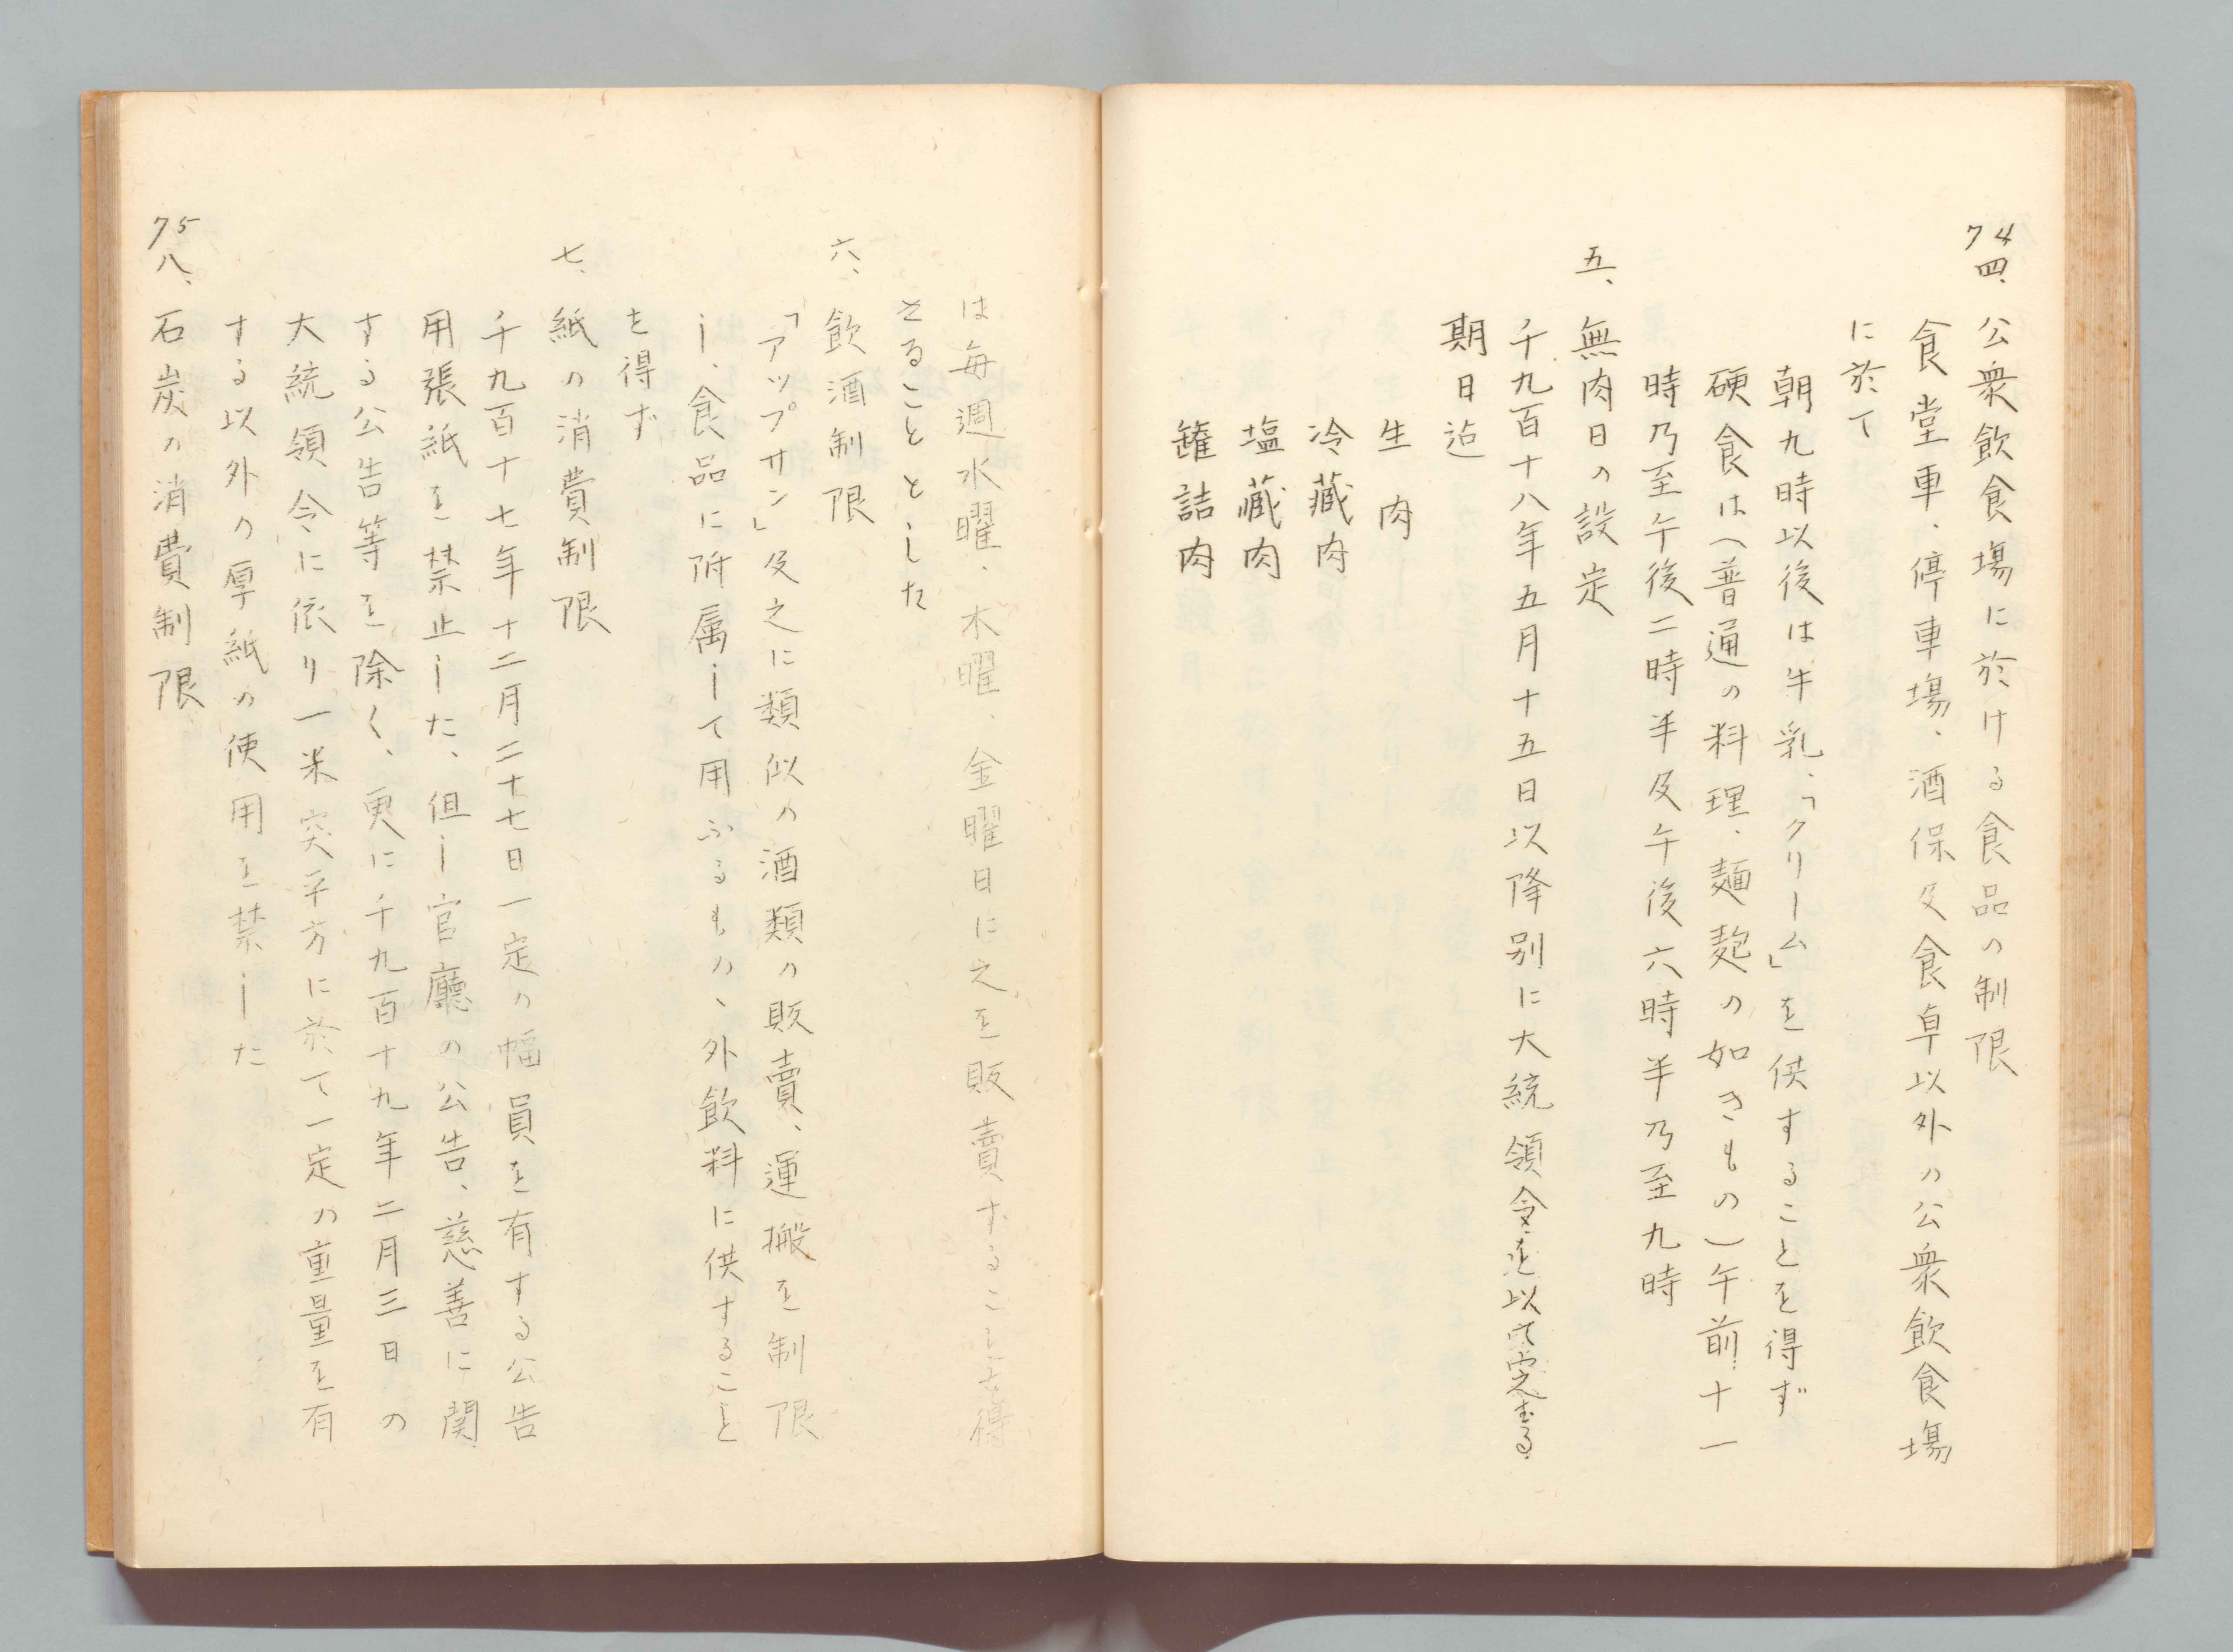 74
四、公衆飲食場に於ける食品の制限
食堂車、停車場、酒保及食卓以外の公衆飲食場
に於て
朝九時以後は牛乳、「クリーム」を供することを得ず
硬食は（普通の料理、麺麭の如きもの）午前十一
時乃至午後二時半及午後六時半乃至九時
五、無肉日の設定
千九百十八年五月十五日以降別に大統領令を以て定むる
期日迠
生肉
冷藏肉
塩藏肉
罐詰肉
は毎週水曜、木曜、金曜日に之を販賣することを得
ざることとした
六、飲酒制限
「アップサン」及之に類似の酒類の販賣、運搬を制限
し、食品に附属して用ふるものゝ外飲料に供すること
を得ず
七、紙の消費制限
千九百十七年十二月二十七日一定の幅員を有する公告
用張紙を禁止した、但し官廳の公告、慈善に関
する公告等を除く、更に千九百十九年二月三日の
大統領令に依り一米突平方に於て一定の重量を有
する以外の厚紙の使用を禁した
75
八、石炭の消費制限